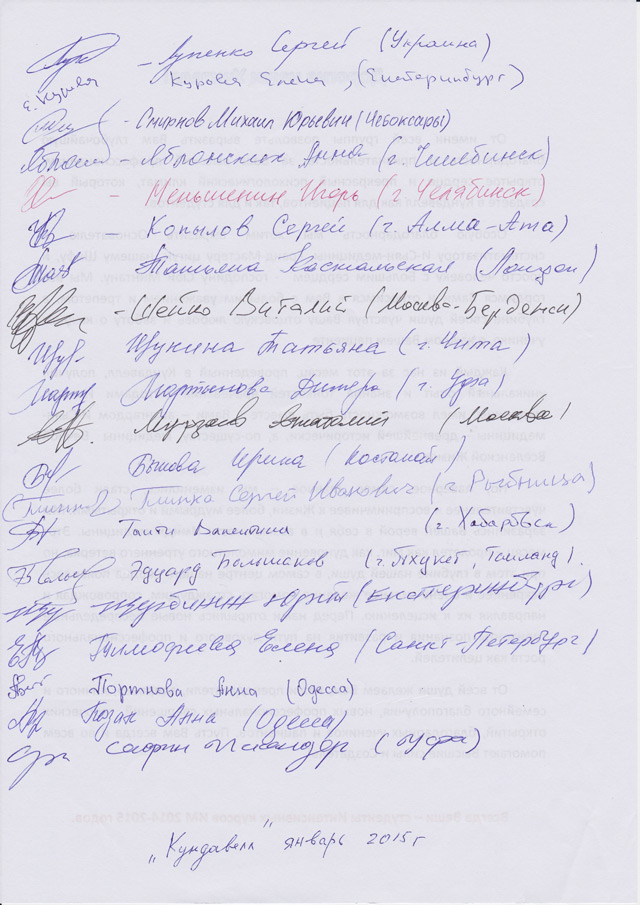 Лупенко Сергей (Украина)
Е. Курова Курова Елена, (Екатеринбург)
Смирнов Михаил Юрьевич (Чебоксары)
Яблонских Анна (г. Челябинск)
Меньшенин Игорь (г. Челябинск)
Копылов Сергей (г. Алма-Ата)
Татьяна Каспальская (Лондон)
Шейко Виталий (Москва-Берденси)
Щукина Татьяна (г. Чита)
Март Мартынова (г. Уфа)
Мурзаев Анатолий (Москва)
Бычова Ирина (Костанай)
Глинка Сергей Иванович (г. Рыбница)
Валентина (г. Хабаровск)
Эдуард Большаков (г. Пхукет, Таиланд).
Щербинин Юрий (Екатеринбург)
Тимофиева Елена (Санкт-Петербург)
Портнова Анна (Одесса)
Позак Анна (Одесса)
Сафин Искандер (Уфа)
„Кундавелл" январь 2015г